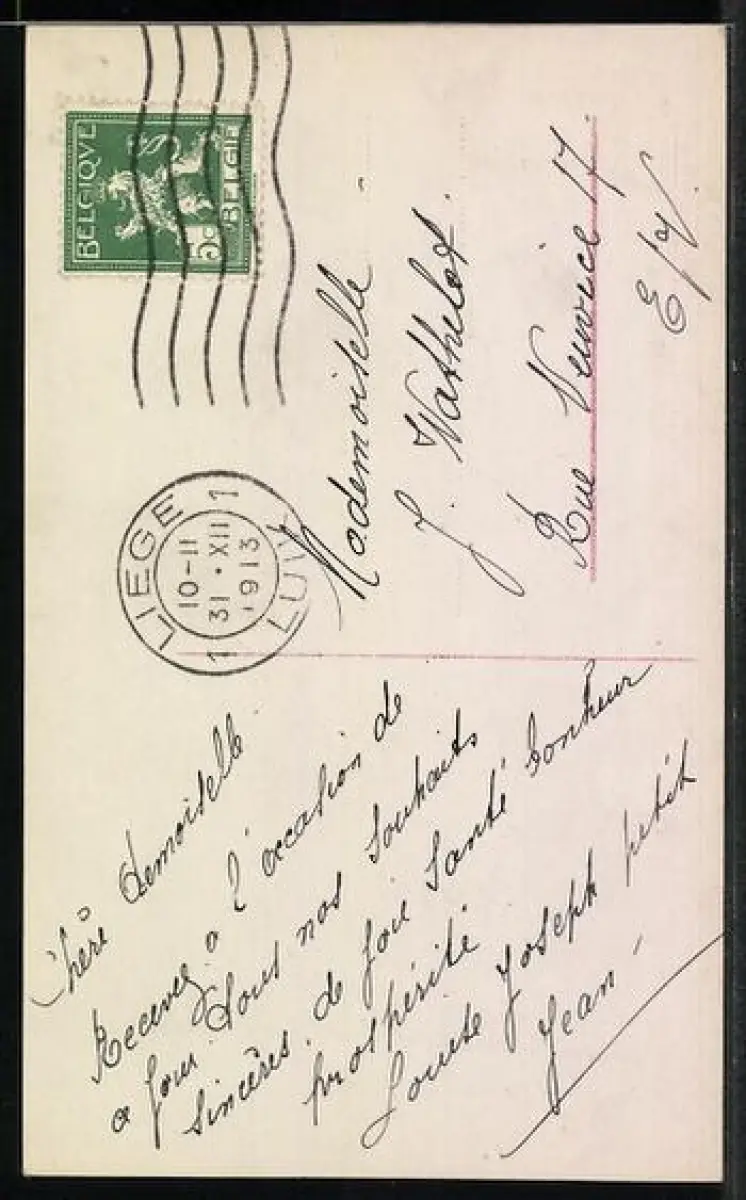 BELGIQVE
BELGIE
5c
LIEGE 1
10-11
31 · XII
1913
1 LUIK
Chère demoiselle.
Recevez a l'occasion de
ce jour tous nos souhaits
sincères, de joie santé bonheur
prospérité
Louise Joseph petit
Jean -
Mademoiselle
J. Wathelet.
Rue Neuvice 17.
E/V.